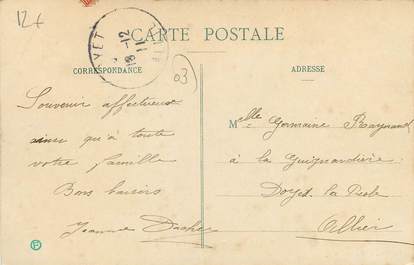 12f
CARTE POSTALE
CORRESPONDANCE
ADRESSE
03
Souvenir affectueux
ainsi qu'à toute
votre famille
Bons baisers
Jeanne
Melle Germaine Raynaud
à la Guignardière
Doyet la Presle
Allier
F